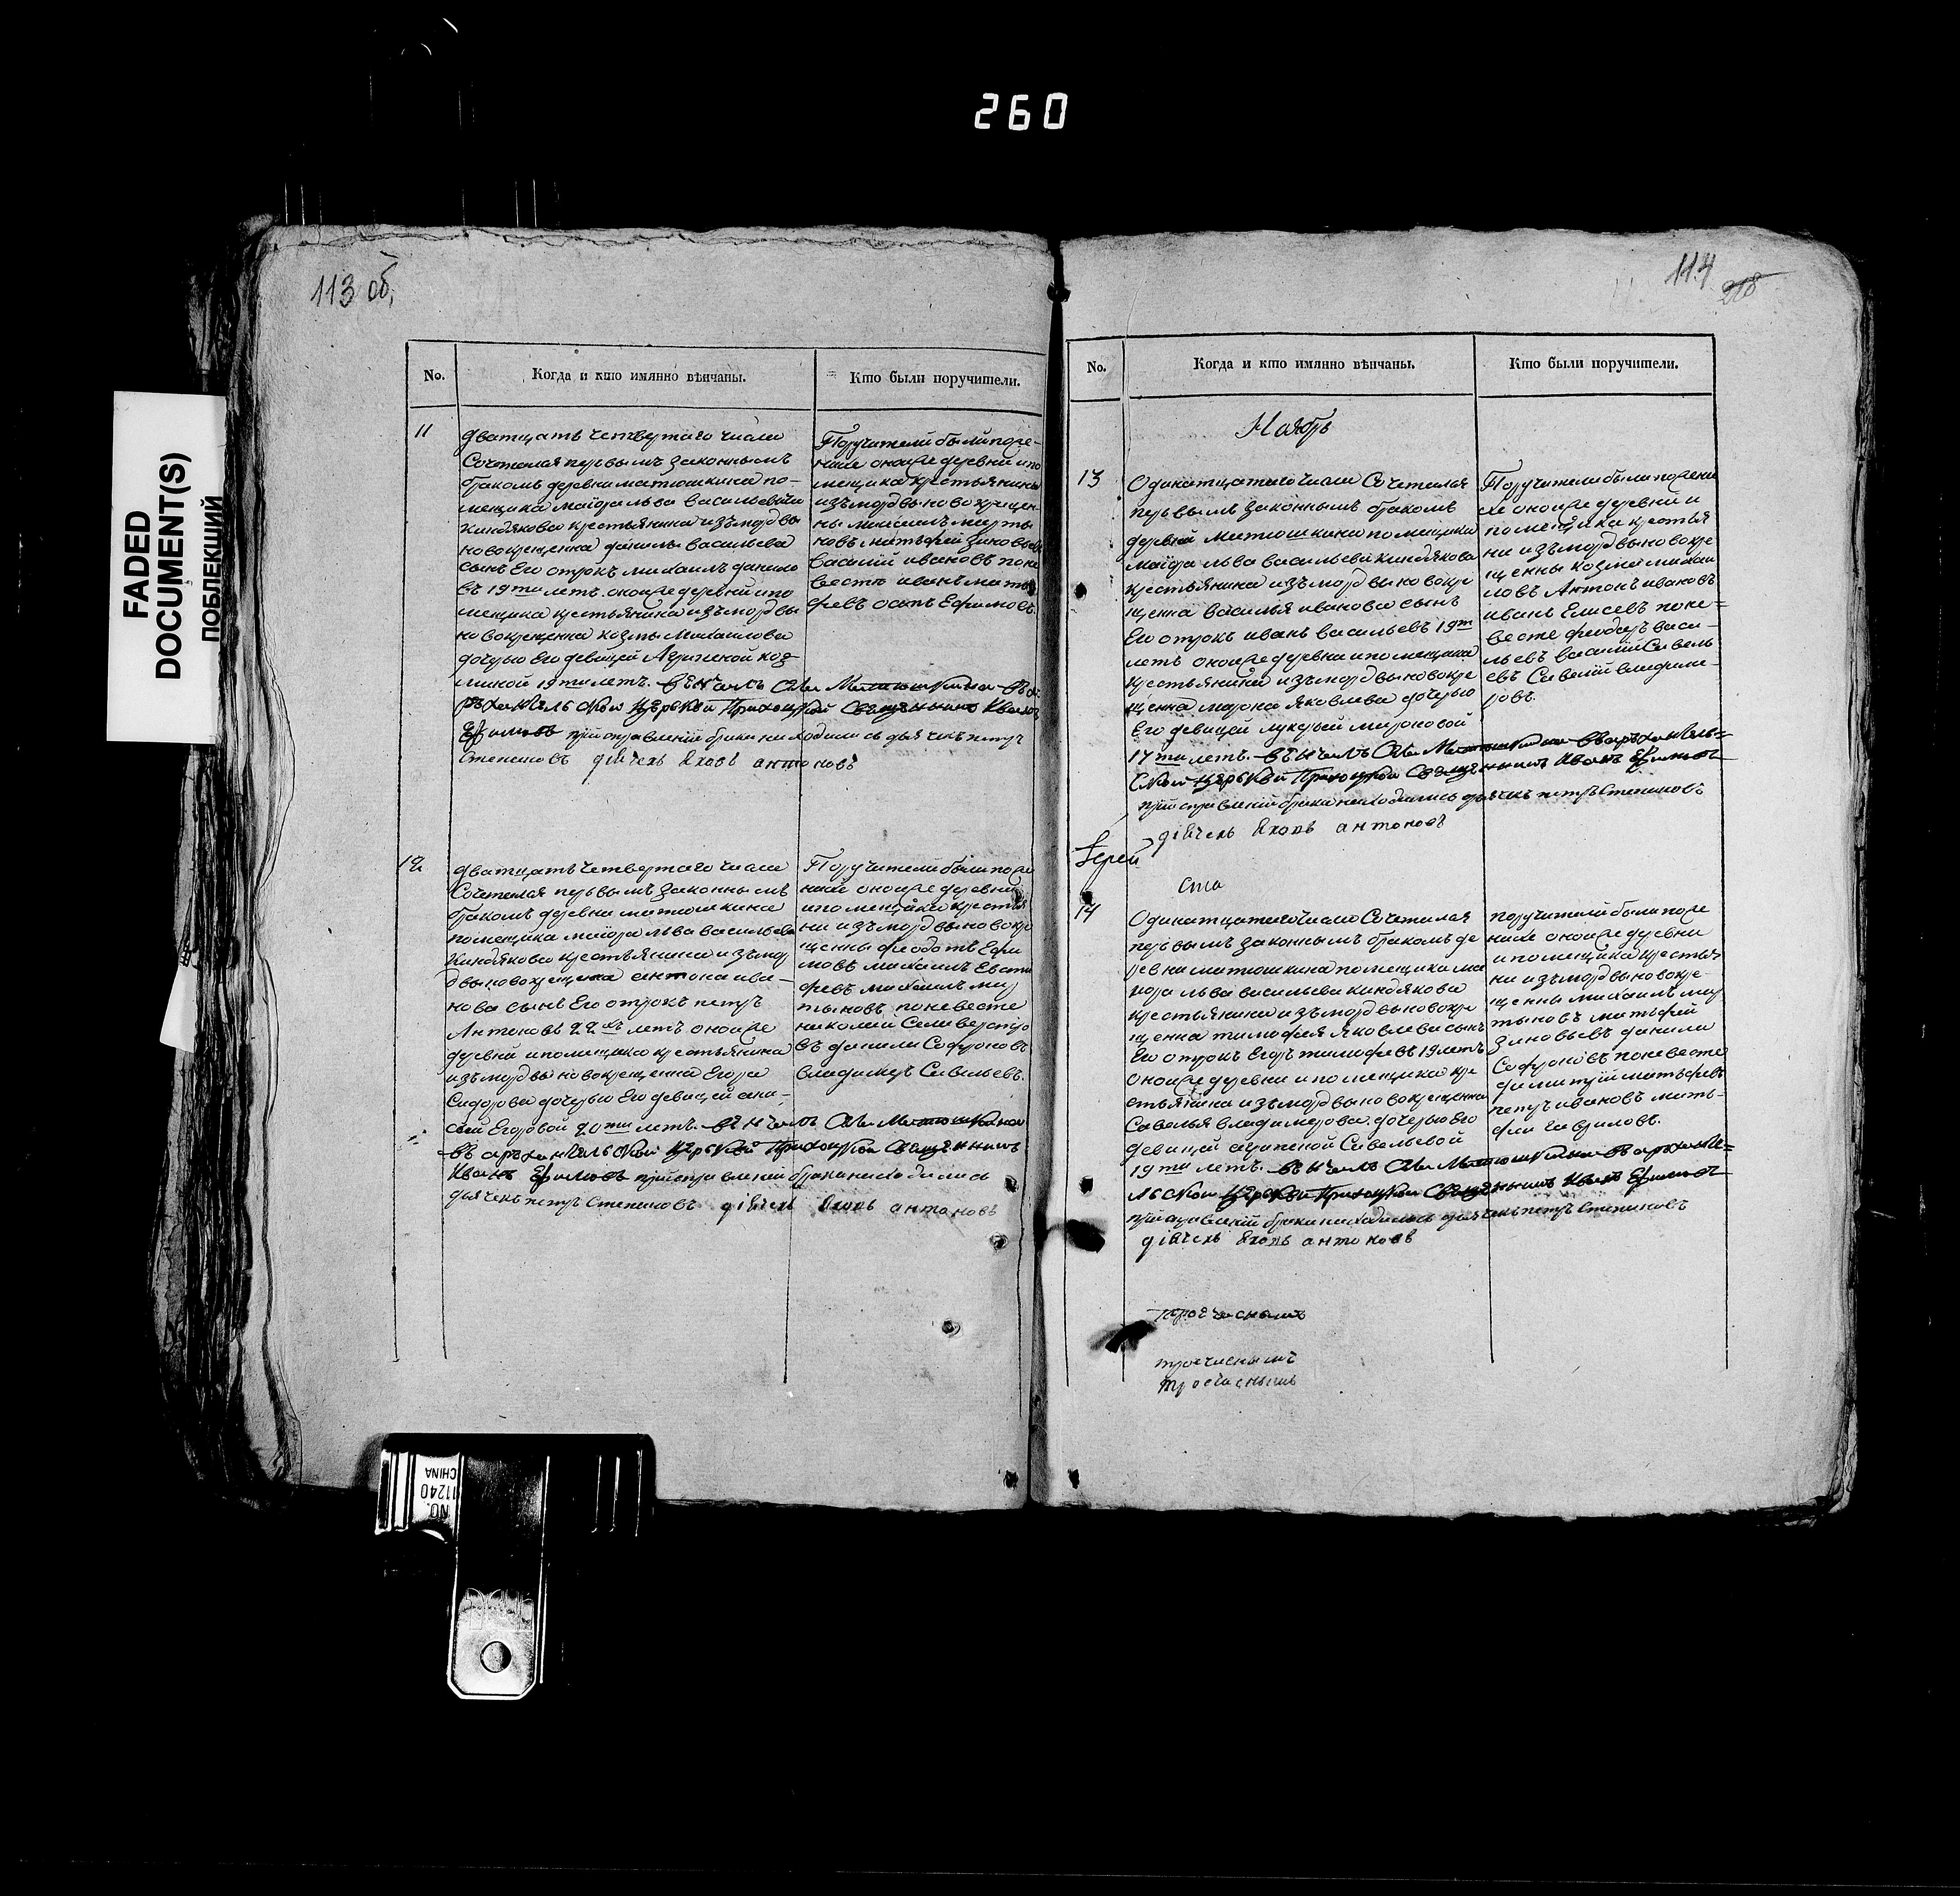 260
FADED
DOCUMENT(S)
ПОБЛЕКШИЙ
113 об.
No. Когда и кто имянно вѣнчаны. Кто были поручители.
11
дватцать четвертаго числа
Сочетался первымъ законнымъ
бракомъ деревни матюшкина по-
мещика маіора льва васильевича
киндякова крестьянина изъ мордвы
новокрещенна данилы васильева
сынъ Его отрокъ михаилъ данило
въ 19ти летъ. оноиже деревни и по
мещика крестьянина изъ мордвы
новокрещенна козмы Михаилова
дочерью Его девицей Агрипеной коз-
миной 19ти летъ. вѣнчалъ Села Матюшкина въ ар
хангельской церкви Приходской Священникъ Иванъ
Ефимовъ при отправленіи брака находились дьячекъ петръ
Степановъ дьячекъ Яковъ антоновъ
Поручители были поже-
нихе оноиже деревни и по
мещика крестьянины
изъ мордвы новокрещен-
ны михаилъ марты
новъ матьфей Зиновьевъ
василій ивановъ поне
весте иванъ матв
феевъ осипъ Ефимовъ.
12
дватцать четвертаго числа
Сочетался первымъ законнымъ
бракомъ деревни матюшкина
помещика маіора льва васильева
киндякова крестьянина изъ мор
двы новокрещенна антона ива-
нова сынъ Его отрокъ петръ
Антоновъ 22хъ летъ оноиже
деревни и помещика крестьянина
изъ мордвы новокрещенна Егора
Сидорова дочерью Его девицей ана-
сіей Егоровой 20ти летъ. вѣнчалъ Села Матюшкина
въ архангельской церкви Приходской Священникъ
Иванъ Ефимовъ при отправленіи брака находились
дьячекъ петръ Степановъ дьячекъ Яковъ антоновъ
Поручители были поже
нихе оноиже деревни
и помещика крестья
ни изъ мордвы новокре
щенны феодотъ Ефи
мовъ михаилъ Евсти
феевъ михаилъ мар
тыновъ поневесте
николаи Селиверстро
въ данила Софроновъ
владимеръ Савельевъ.
114
218
No. Когда и кто имянно вѣнчаны. Кто были поручители.
Ноябрь
13
Одинатцатаго числа Сочетался
первымъ законнымъ бракомъ
деревни матюшкина помещика
маіора льва васильева киндякова
крестьянина изъ мордвы новокре
щенна василья иванова сынъ
Его отрокъ иванъ васильевъ 19ти
летъ оноиже деревни и помещика
крестьянина изъ мордвы новокре
щенна марона Яковлева дочерью
Его девицей лукерьей мироновой
17ти летъ. вѣнчалъ Села Матюшкина въ архангель=
ской церкви Приходской Священникъ Иванъ Ефимовъ
при отправленіи брака находились дьячекъ петръ Степановъ
дьячекъ Яковъ антоновъ
Поручители были пожени
хе оноиже деревни и
помещика крестья
ни изъ мордвы новокре
щенны козма михаи
ловъ Антонъ ивановъ
иванъ Елисеевъ поне=
весте феодоръ васи-
льевъ василій Савель
евъ Савелій владиме-
ровъ.
Іерей
ста
14
Одинатцатаго числа Сочетался
первымъ законнымъ бракомъ де
ревни матюшкина помещика ма
іора льва васильева киндякова
крестьянина изъ мордвы новокре
щенна тимофея Яковлева сынъ
Его отрокъ Егоръ тимофеевъ 19 летъ
оноиже деревни и помещика кре
стьянина изъ мордвы новокрещенна
Савелья владимерова дочерью Его
девицей агрипеной Савельевой
19ти летъ. вѣнчалъ Села Матюшкина въ арханге=
льской церкви Приходской Священникъ Иванъ Ефимовъ
при отправленіи брака находились дьячекъ петръ Степановъ
дьячекъ Яковъ антоновъ
поручители были поже
нихе оноиже деревни
и помещика крестья
ни изъ мордвы новокре-
щенны михаилъ мар
тыновъ матьфей
Зиновьевъ данила
Софроновъ поневесте
димитрій матьфеевъ
петръ ивановъ мать-
фей Гавриловъ.
троечаснымъ
троечаснымъ
троечаснымъ
NO.
11240
CHINA